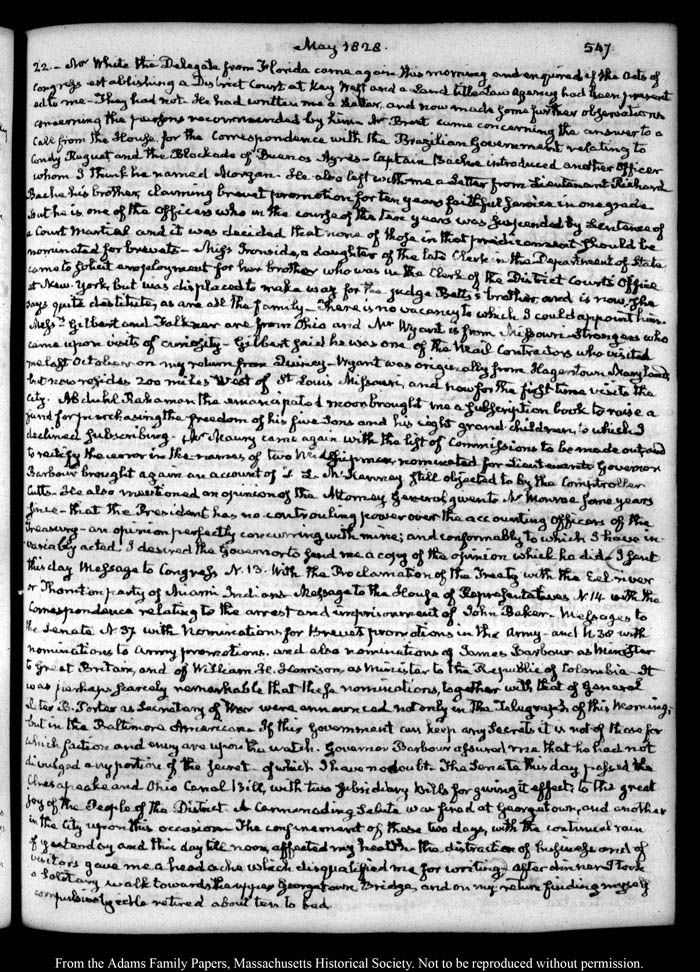 May 1828. 547
22.- Mr White the Delegate from Florida came again this morning and enquired if the Acts of
Congress establishing a District Court at Key West and a Land title Law Agency had been present
ed to me- They had not. He had written me a Letter, and now made some further observations
concerning the persons recommended by him. Mr Brent came concerning the answer to a
Call from the House, for the Correspondence with the Brazilian Government relating to
Condy Raguet and the Blockade of Buenos Ayres- Captain Bache introduced another Officer
whom I think he named Morgan- He also left with me a Letter from Lieutenant Richard
Bache his brother, claiming brevet promotion for ten years faithful service in one grade
but he is one of the Officers who in the course of the ten years was suspended by Sentence of
a Court Martial and it was decided that none of those in that predicament should be
nominated for brevets- Miss Ironside, a daughter of the late Clerk in the Department of State
came to solicit employment for her brother who was in the Clerk of the District Courts Office
at New-York, but was displaced to make way for the Judge Betts's brother, and is now, she
says quite destitute, as are all the family- There is no vacancy to which I could appoint him.
Messrs Gilbert and Falkner are from Ohio and Mr Wyant is from Missouri- Strangers who
came upon visits of curiosity- Gilbert said he was one of the Mail Contractors who visited
me last October on my return from Quincy- Wyant was originally from Hagerstown Maryland;
but now resides 200 miles West of St Louis Missouri, and now for the first time visits the
City. Abduhl Rahaman the emancipated moor brought me a subscription book to raise a
fund for purchasing the freedom of his five Sons and his eight grand-children, to which I
declined subscribing- Mr Maury came again with the list of Commissions to be made out and
to rectify the error in the names of two Midshipmen nominated for Lieutenants Governor
Barbour brought again an account of T. L. McKenney still objected to by the Comptroller
Cutts- He also mentioned an opinion of the Attorney General, given to Mr Monroe some years
since- that the President has no controuling power over the accounting Officers of the
Treasury- an opinion perfectly concurring with mine; and conformably to which I have in-
variably acted. I desired the Governor to send me a copy of the opinion which he did. I sent
this day Message to Congress N. 13. With the Proclamation of the Treaty with the Eel-river
or Thornton party of Miami Indians- Message to the House of Representatives N. 14 with the
Correspondence relating to the arrest and imprisonment of John Baker- Messages to
the Senate N. 37 with Nominations for Brevet promotions in the Army- and N. 38 with
nominations to Army promotions. and also nominations of James Barbour as Minister
to Great Britain, and of William H. Harrison, as Minister to the Republic of Colombia- It
was perhaps scarcely remarkable that these nominations, together with that of General
Peter B. Porter as Secretary of War were announced not only in the Telegraph of this Morning,
but in the Baltimore American. If this Government can keep any Secrets it is not of those for
which faction and envy are upon the watch. Governor Barbour assured me that he had not
divulged any portion of the secret- of which I have no doubt- The Senate this day passed the
Chesapeake and Ohio Canal Bill, with two subsidiary bills for giving it effect; to the great
joy of the People of the District. A Cannonading Salute was fired at Georgetown, and another
in the City upon this occasion- The confinement of these two days, with the continual rain
of yesterday and this day till noon, affected my health- the distraction of business and of
visitors gave me a headache which disqualified me for writing. After dinner I took
a solitary walk towards the upper Georgetown Bridge, and on my return finding myself
retired about ten to bed
From the Adams Family Papers, Massachusetts Historical Society. Not to be reproduced without permission.